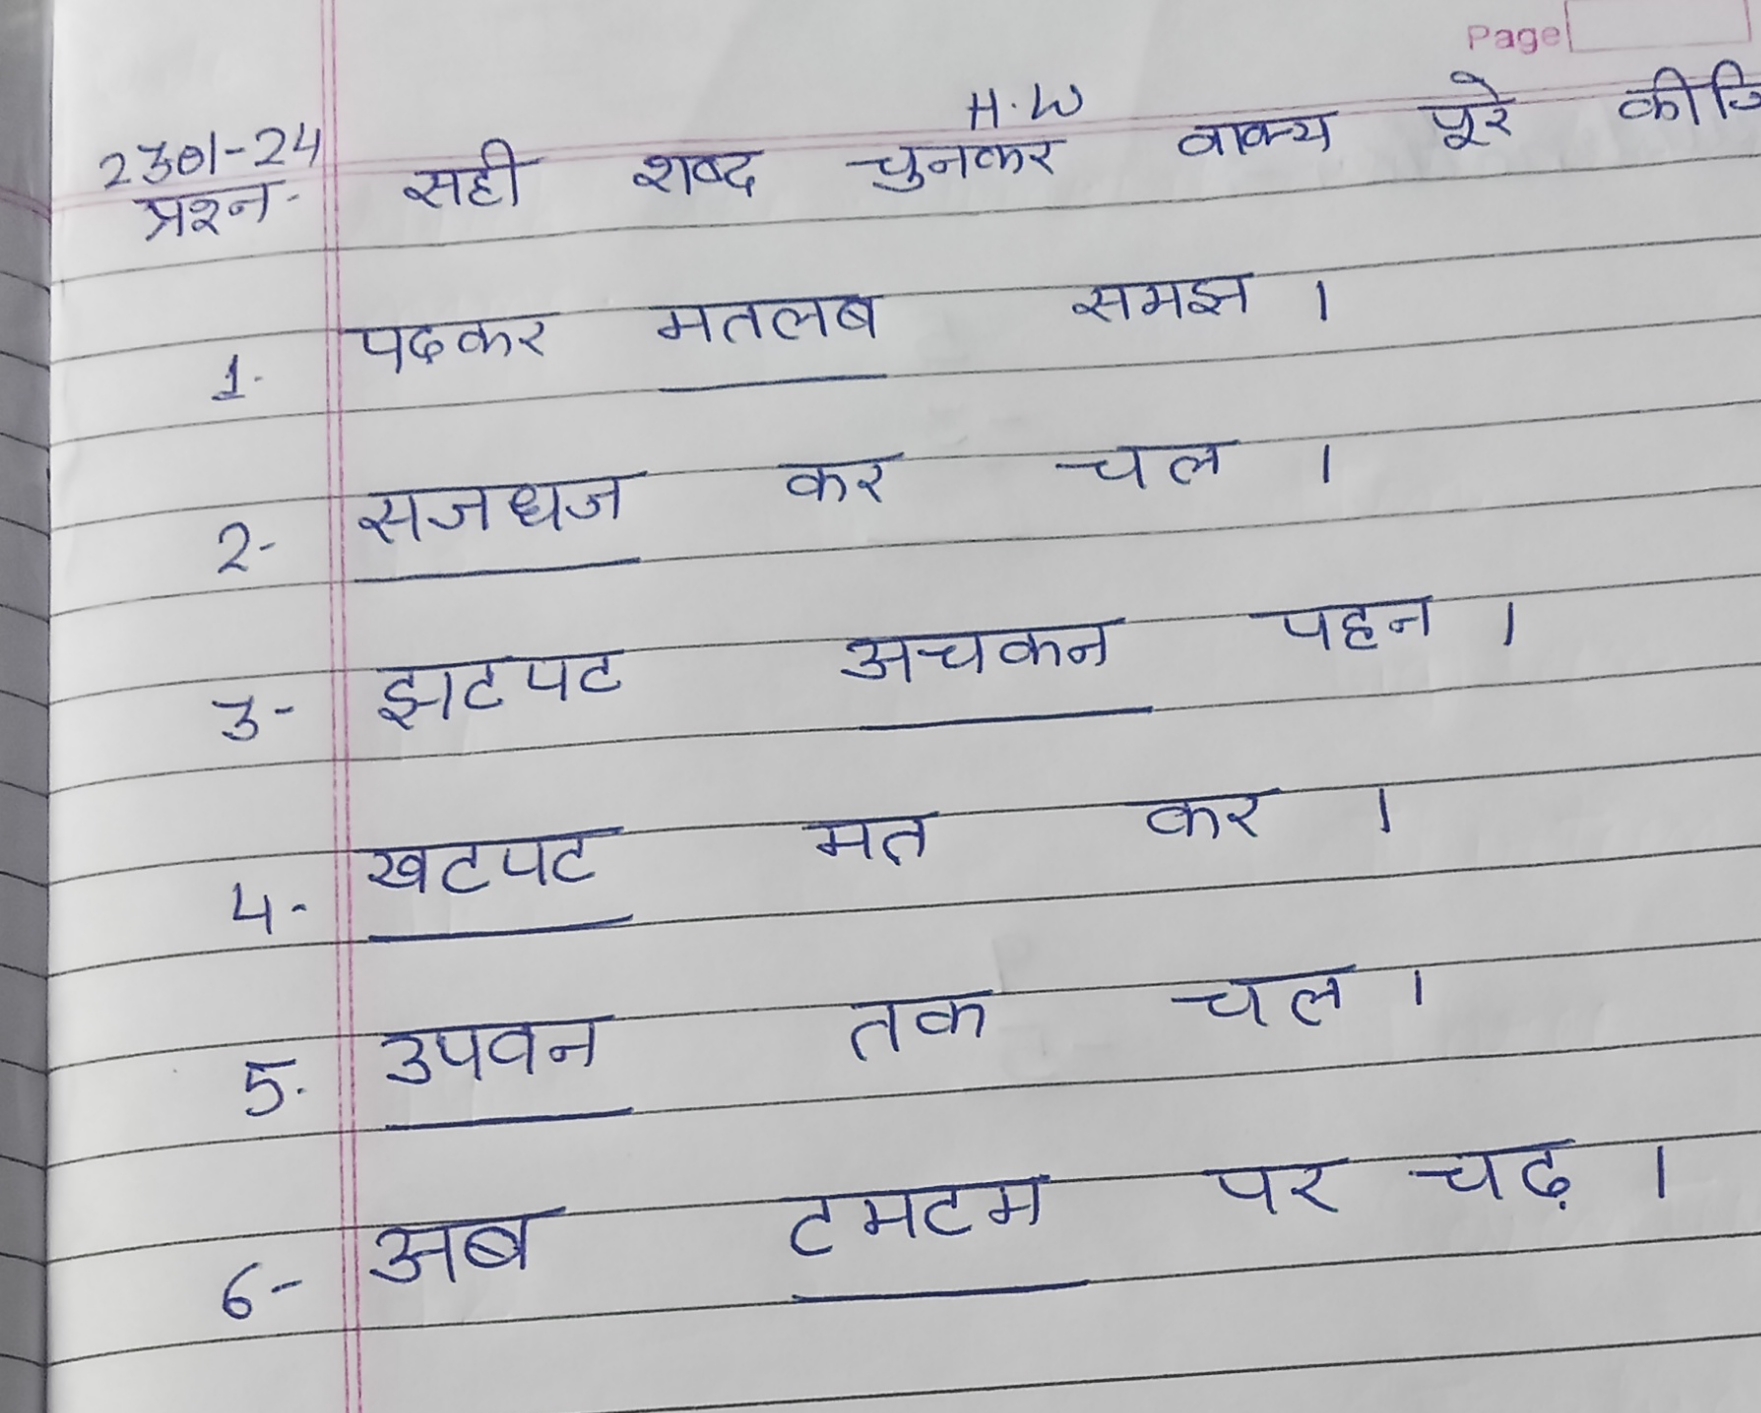 Page
H.W
2301-24
प्रश्न- सही शब्द चुनकर वाक्य पूरे
1. पढकर मतलब समझ ।
2- सजधज कर चल ।
3- झटपट अचकन पहन ।
4- खटपट मत कर ।
5. उपवन तक चल ।
6- अब टमटम पर चढ़ ।